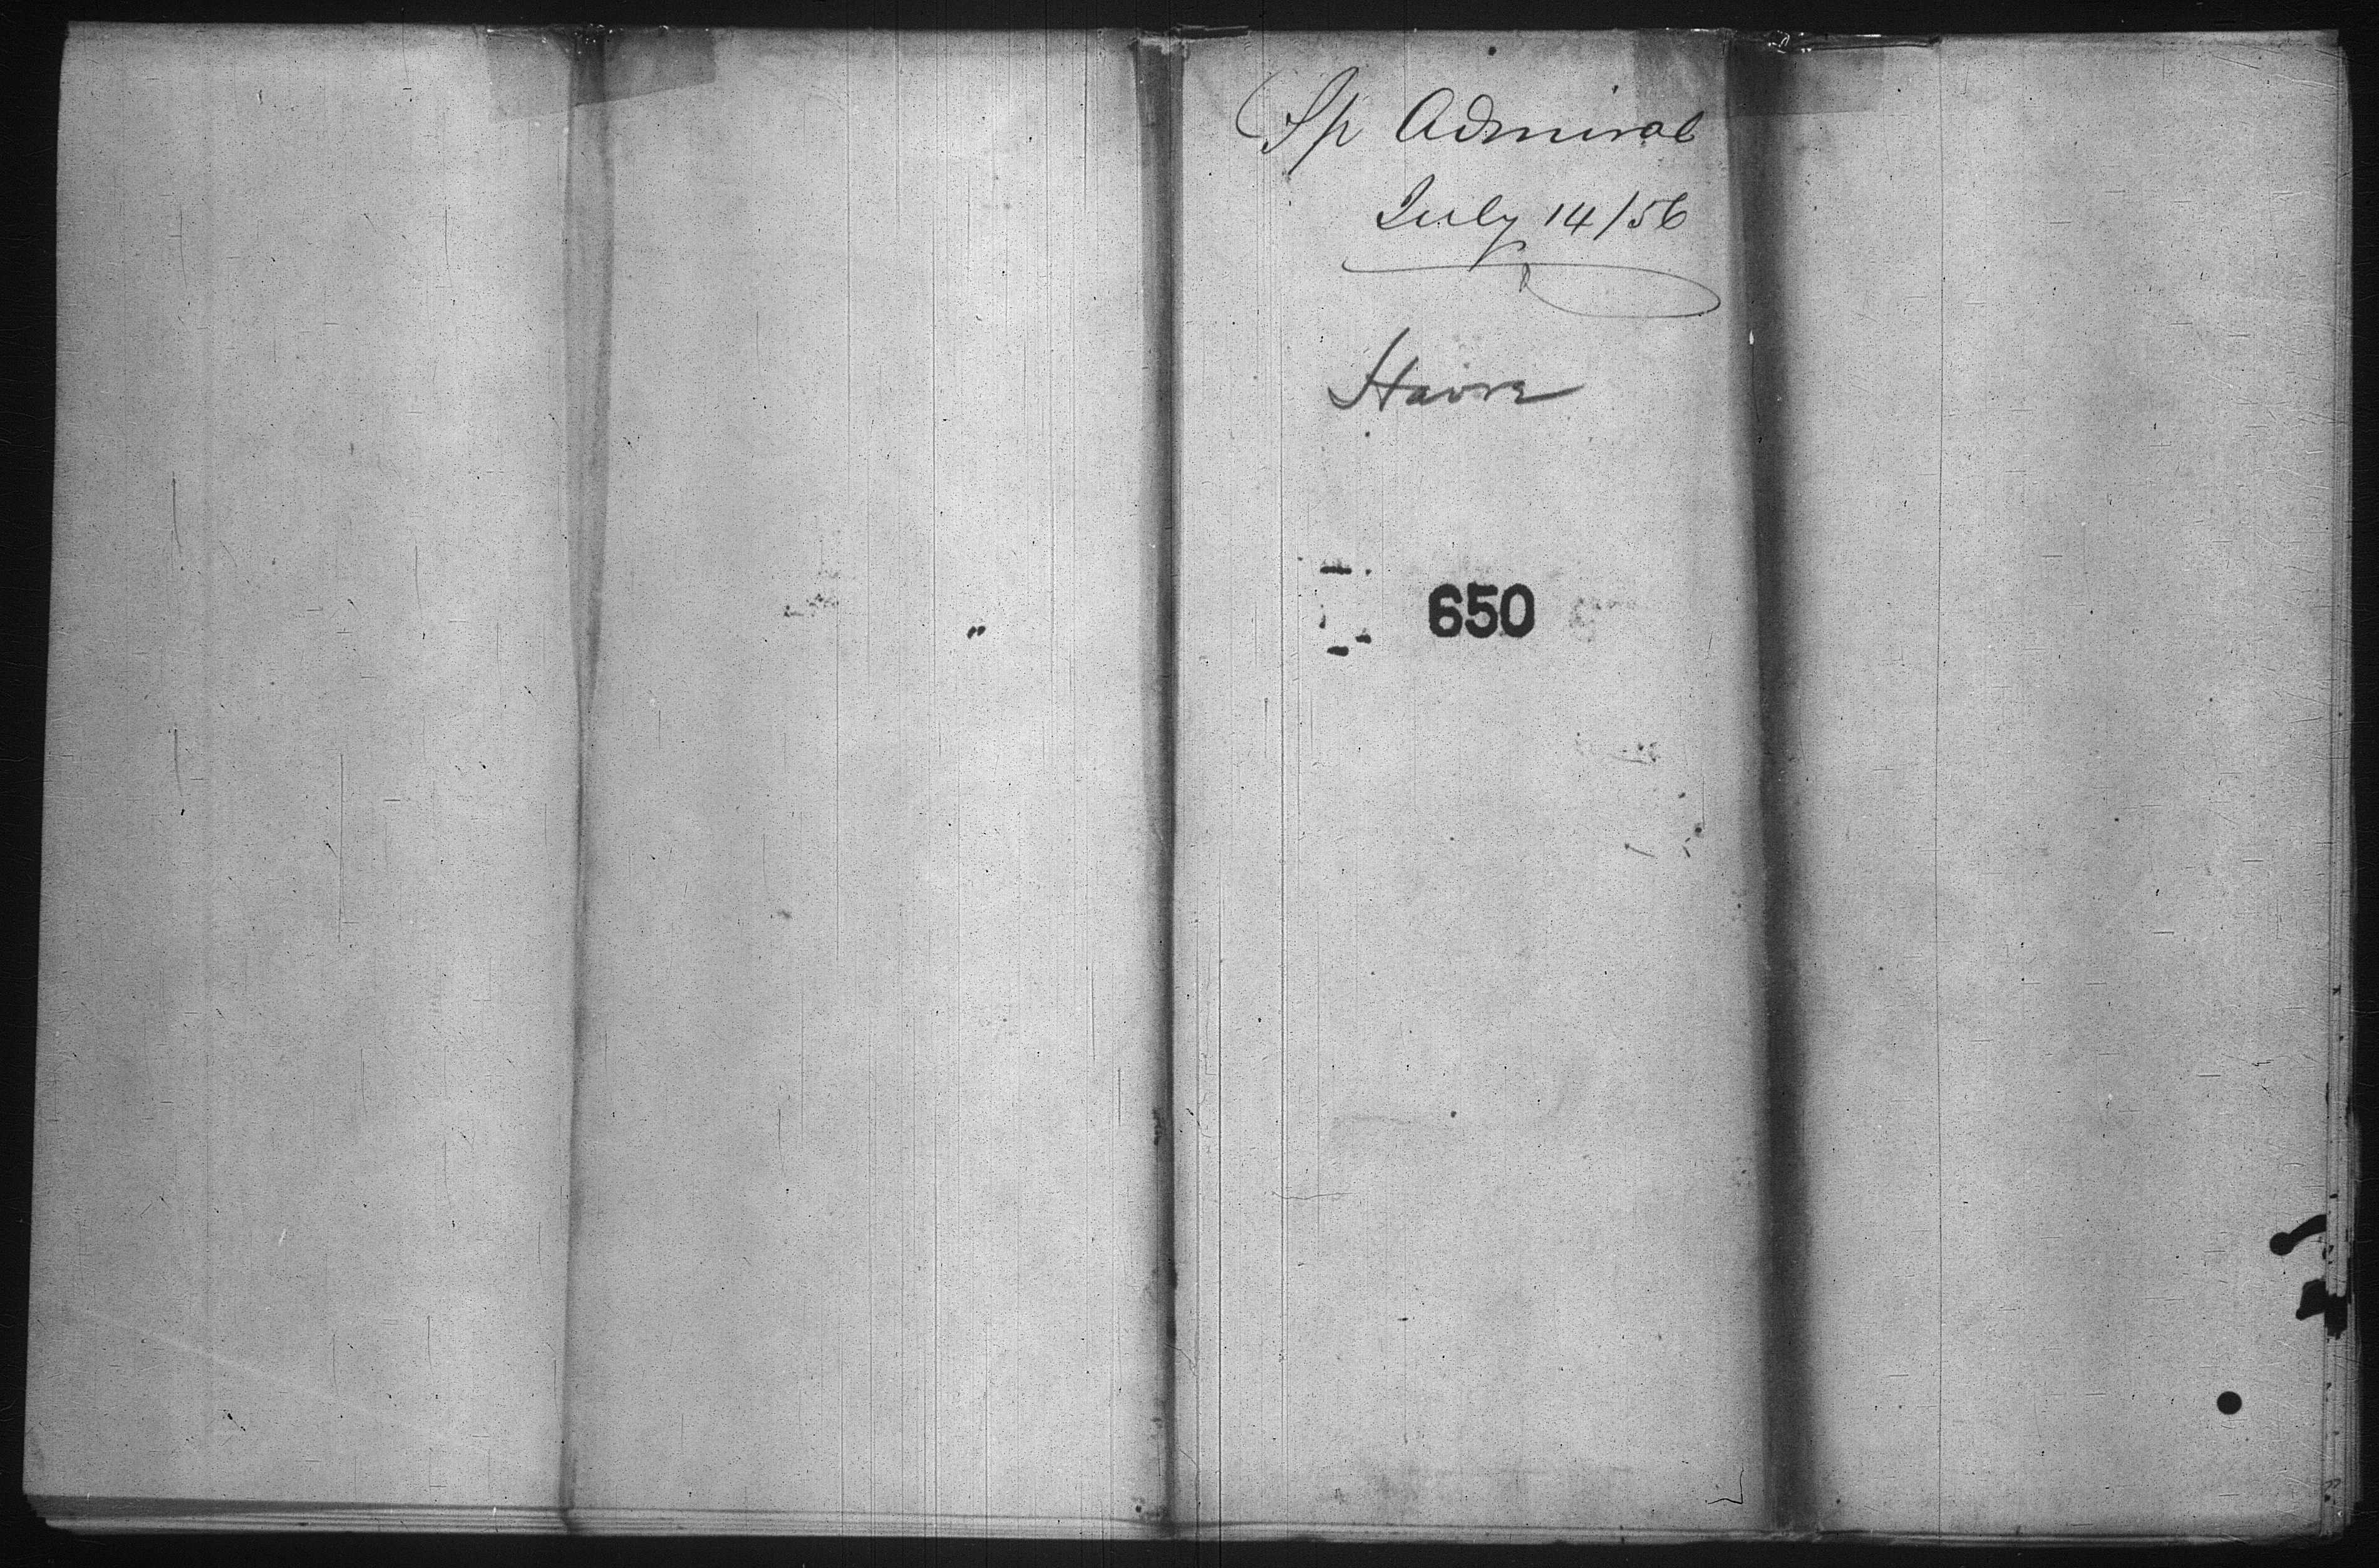 Sp Admiral
July 14/56
Havre
650